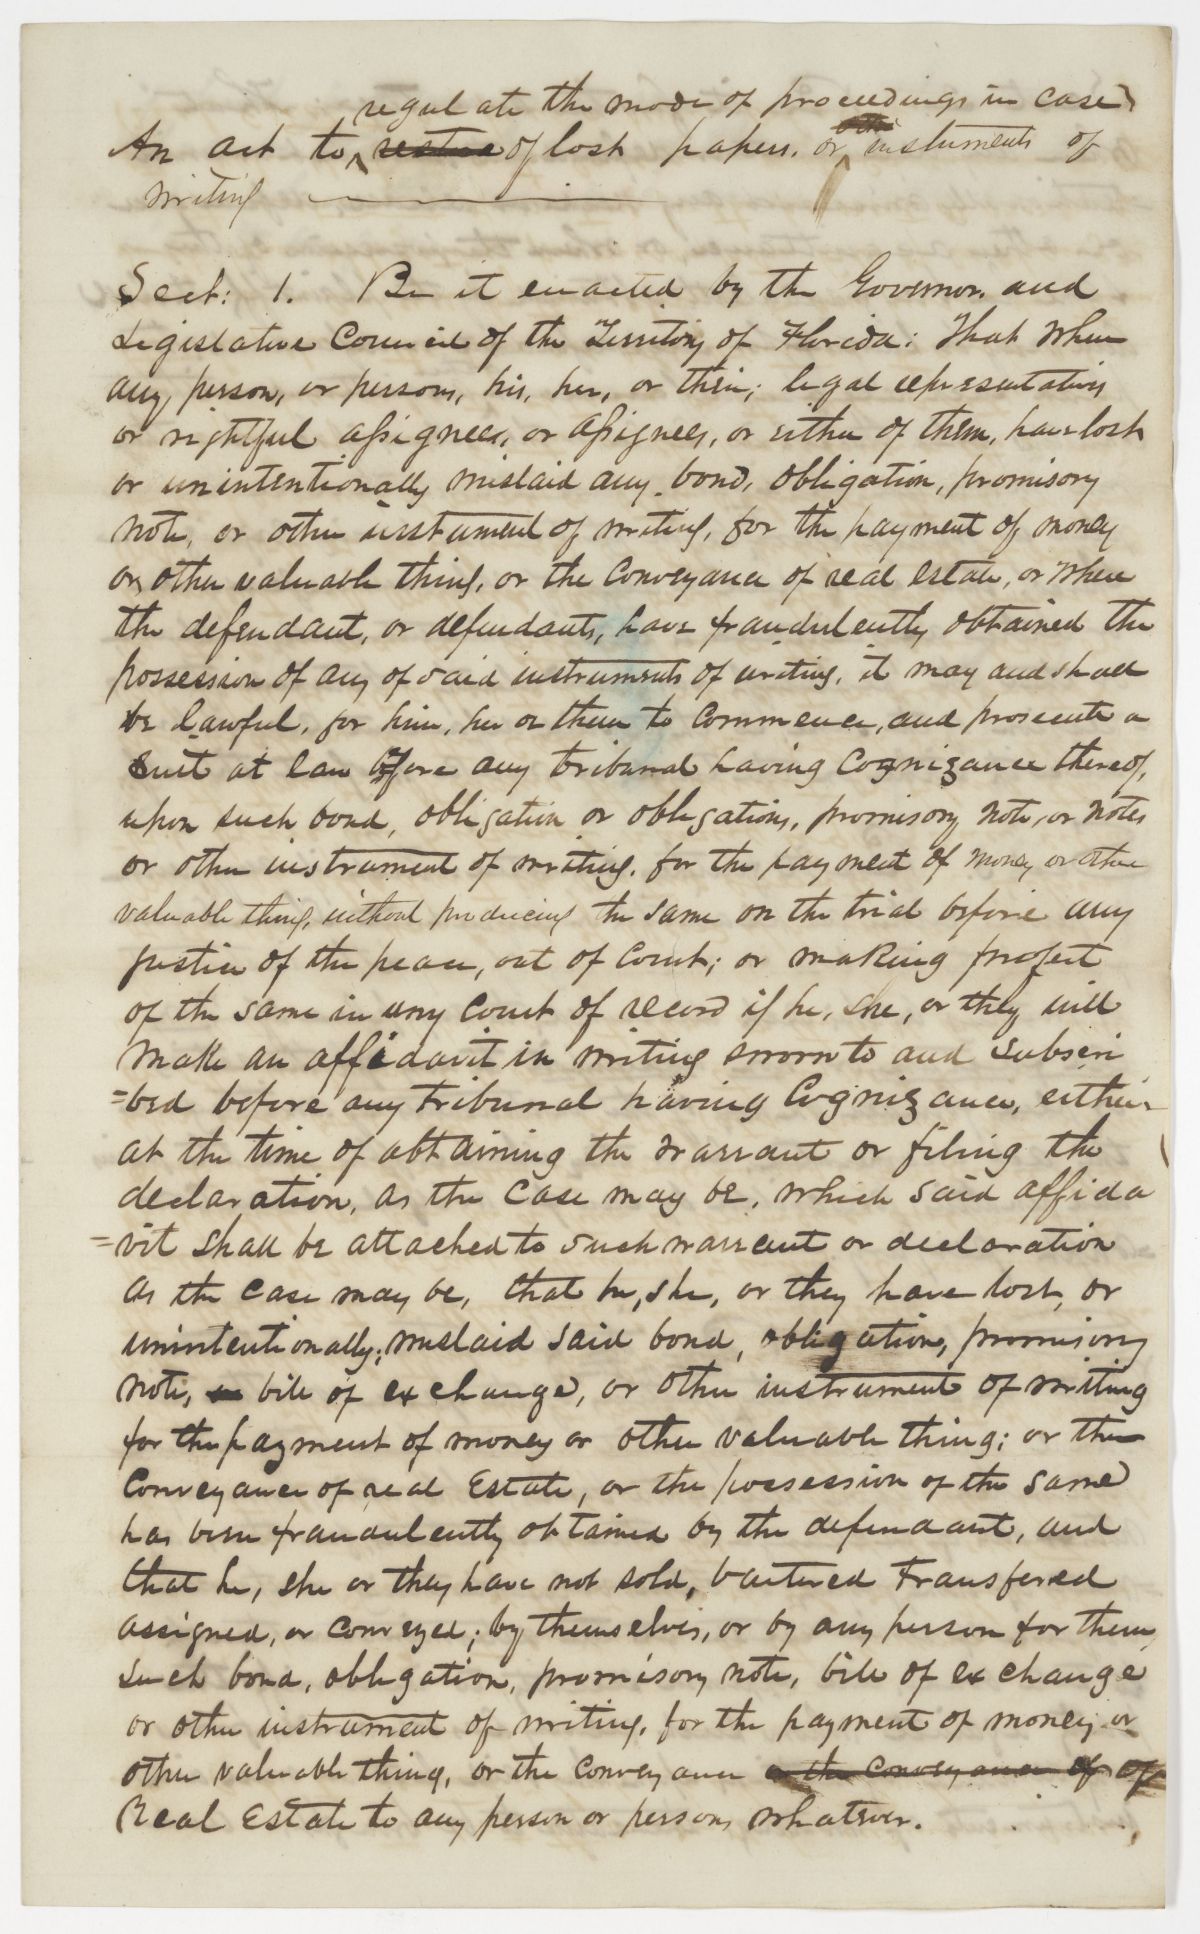 regulate the mode of proceedings in cases
An act to restore of lost papers, or other instruments of
writing
Sect: 1. Be it enacted by the Governor, and
Legislative Council of the Territory of Florida: That when
any, person, or persons, his, her, or their; legal representatives
or rightful assignees, or assignees, or either of them, have lost
or unintentionally mislaid any bond, obligation, promisory
note, or other instrument of writing, for the payment of money
or other valuable thing, or the conveyance of real estate, or where
the defendant, or defendants, have fraudulently obtained the
possession of any of said instruments of writing, it may and shall
be lawful, for him, her or them to commence, and prosecute a
suit at law before any tribunal having cognizance thereof,
upon such bond, obligation or obligations, promisory note, or notes
or other instrument of writing, for the payment of money or other
valuable thing, without producing the same on the trial before any
justice of the peace, out of Court; or making profert
of the same in any Court of record if he, she, or they will
make an affidavit in writing sworn to and subscri
=bed before any tribunal having Cognizance, either
at the time of obtaining the warrant or filing the
declaration, as the case may be, which said affida
=vit shall be attached to such warrant or declaration
as the case may be, that he, she, or they have lost, or
unintentionally, mislaid said bond, obligation, promisory
note, or bill of exchange, or other instrument of writing
for the payment of money or other valuable thing; or the
Conveyance of real Estate, or the possession of the same
has been fraudulently obtained by the defendant, and
that he, she or they have not sold, bartered transfered
assigned, or conveyed; by themselves, or by any person for them,
such bond, obligation, promisory note, bill of exchange
or other instrument of writing, for the payment of money or
other valuable thing, or the conveyance or the conveyance of of
Real Estate to any person or persons whatever.